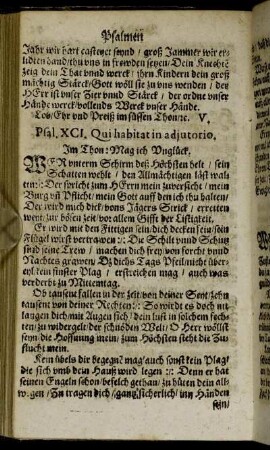 Psalmen
Jahr wir hart casteyet seynd / groß Jammer wir er-
lidten hand/thu vns in frewden setzen/Dein Knechte
zeig dein That vnnd werck / jhrn Kindern dein groß
mächtig Stärck/Gott wöll sie zu vns wenden / der
HErr ist vnser Zier vnnd Stärck / der ordne vnser
Hände werck/vollends Werck vnser Hände.
Lob/Ehr vnd Preiß im süssen Thon/ꝛc. V.
Psal. XCI. Qui habitat in adjutorio.
Im Thon: Mag ich Vnglück.
WEr vnterm Schirm deß Höchsten helt / sein
Schatten wehlt / den Allmächtigen läst wal-
ten:,: Der spricht zum HErrn mein zuversicht / mein
Burg vñ Pflicht / mein Gott auff den ich thu halten/
Der wird mich dick vons Jägers Strick / erretten
wenn zur bösen zeit/ vor allem Gifft der Listigkeit.
Er wird mit den Fittigen sein/dich decken sein/sein
Flügel wirst vertrawen:,: Die Schilt vnnd Schirm
sind seine Trew / machen dich frey/von forcht vnnd
Nachtes grawen/ Ob dichs Tags Pfeil nicht über-
eyl/kein finster Plag / erstreichen mag / auch was
verderbt zu Mittemtag.
Ob tausent fallen in der zeit/von deiner Seyt/zehn
tausent von deiner Rechten:,: So wirdt es doch nit
langen dich/mit Augen sich/ dein lust in solchem fech-
ten/zu widergelt/ der schnöden Welt/ O Herr wöllst
seyn/ die Hoffnung mein/ zum Höchsten steht die Zu-
flucht mein.
Kein übels dir begegnẽ mag/auch sonst kein Plag/
die sich vmb dein Hauß wird legen:,: Denn er hat
seinen Engeln schon/befelch gethan/zu hüten dein all-
wegen / Zu tragen dich/ganz sicherlich/ in Händen
sein/